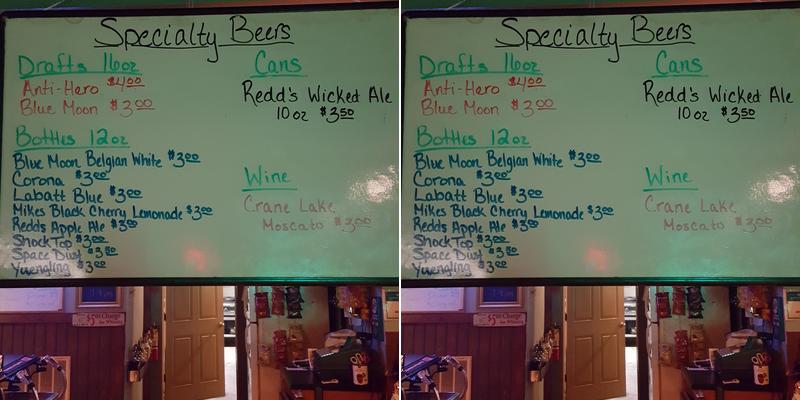 Specialty Beers
Drafts 16oz
Anti-Hero $4.00
Blue Moon $3.00
Bottles 12oz
Blue Moon Belgian White $3.00
Corona $3.00
Labatt Blue $3.00
Mikes Black Cherry Lemonade $3.00
Redds Apple Ale $3.00
Shock Top $3.00
Space Dust $3.50
Yuengling $3.00
Cans
Redd's Wicked Ale
10 oz $3.50
Wine
Crane Lake
Moscato $3.00
$5.00 Charge
for Whining
Specialty Beers
Drafts 16oz
Anti-Hero $4.00
Blue Moon $3.00
Bottles 12oz
Blue Moon Belgian White $3.00
Corona $3.00
Labatt Blue $3.00
Mikes Black Cherry Lemonade $3.00
Redds Apple Ale $3.00
Shock Top $3.00
Space Dust $3.50
Yuengling $3.00
Cans
Redd's Wicked Ale
10 oz $3.50
Wine
Crane Lake
Moscato $3.00
$5.00 Charge
for Whining